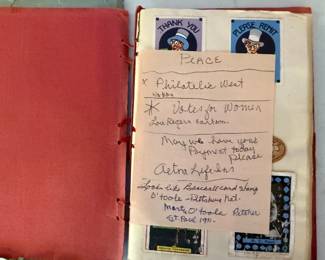 THANK YOU
PLEASE REMIT
PEACE
x Philatelic West
* Votes for Women
Lou Rogers cartoon
May we have your
Payment today
please
Aetna Life Ins
Looks like Baseball card Hang
O'toole - Pittsburg Nat.
Marty O'toole Pitcher
St. Paul 1911.